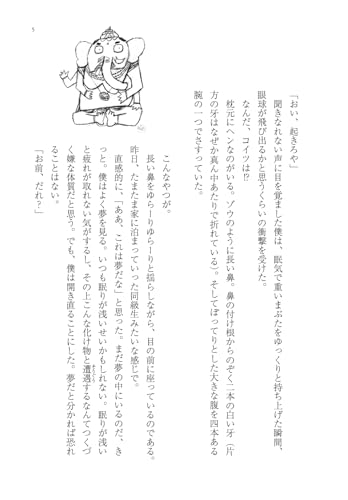 5
「おい、起きろや」
聞きなれない声に目を覚ました僕は、眠気で重いまぶたをゆっくりと持ち上げた瞬間、
眼球が飛び出るかと思うくらいの衝撃を受けた。
なんだ、コイツは!?
枕元にヘンなのがいる。ゾウのように長い鼻。鼻の付け根からのぞく二本の白い牙（片
方の牙はなぜか真ん中あたりで折れている）。そしてぽってりとした大きな腹を四本ある
腕の一つでさすっていた。
こんなやつが。
長い鼻をゆらーりゆらーりと揺らしながら、目の前に座っているのである。
昨日、たまたま家に泊まっていった同級生みたいな感じで。
直感的に、「ああ、これは夢だな」と思った。まだ夢の中にいるのだ、き
っと。僕はよく夢を見る。いつも眠りが浅いせいかもしれない。眠りが浅い
と疲れが取れない気がするし、その上こんな化け物と遭遇するなんてつくづ
く嫌な体質だと思う。でも、僕は開き直ることにした。夢だと分かれば恐れ
ることはない。
「お前、だれ？」